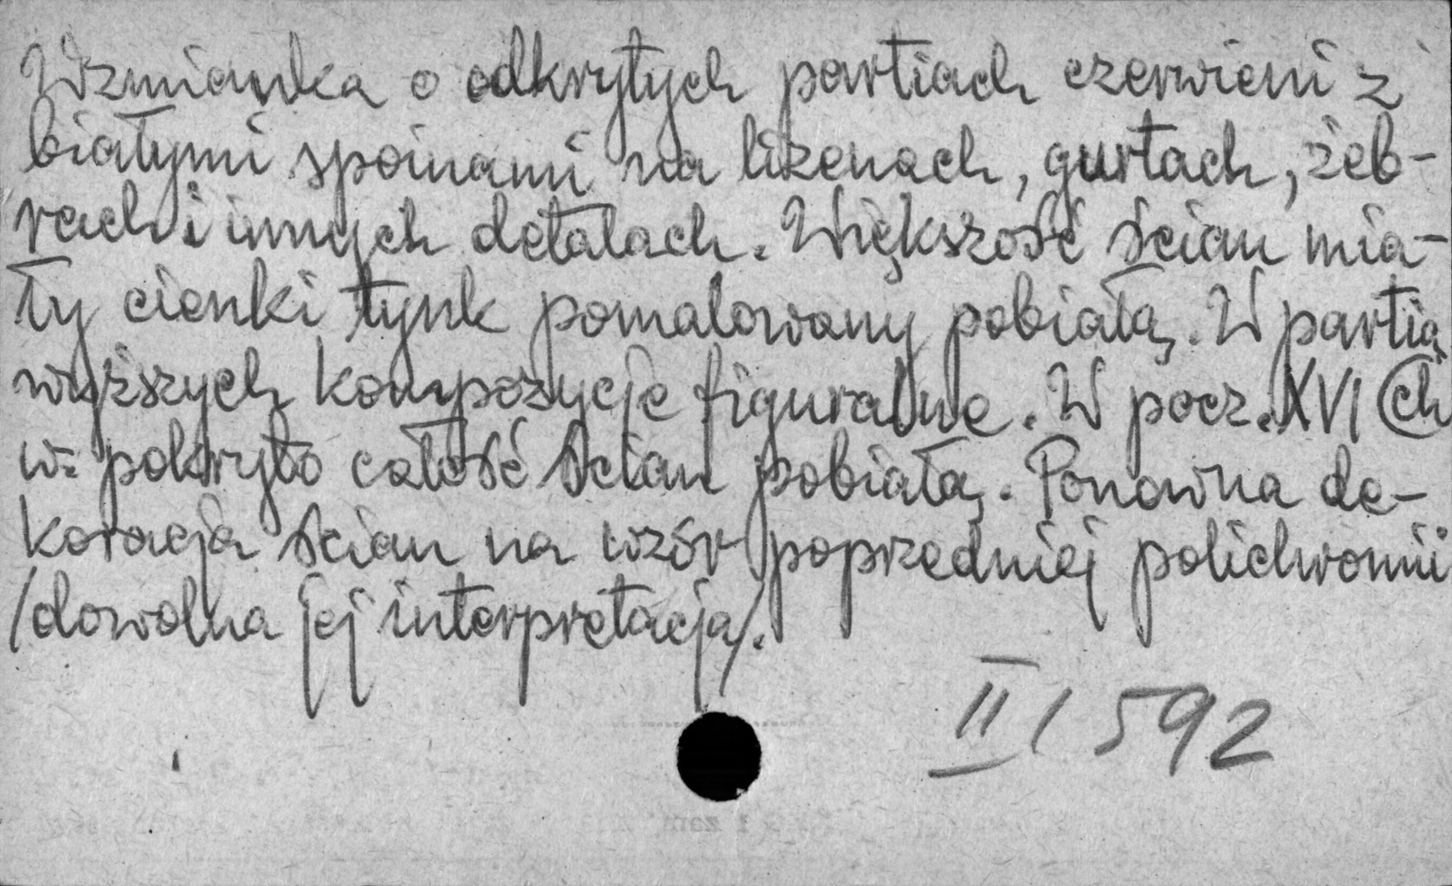 Wzmianka o odkrytych partiach czerwieni z
białymi spoinami na lizenach, gurtach, żeb-
rach i innych detalach. Większość ścian mia-
ły cienki tynk pomalowany pobiałą. W partia
wyższych kompozycje figuralne. W pocz. XVI ch
w. pokryto całość ścian pobiałą. Ponowna de-
koracja ścian na wzór poprzedniej polichromii
/dowolna jej interpretacja/.
II / 592